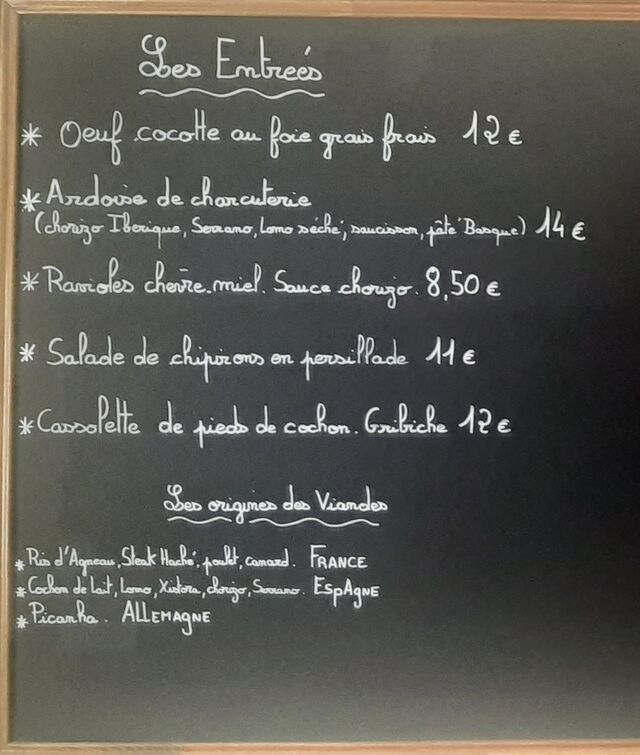 Les Entreés
* Oeuf cocotte au foie grais frais 12 €
* Ardoise de charcuterie
(chorizo Iberique, Serrano, Lomo séché, saucisson, pâté Basque) 14 €
* Ravioles chèvre.miel. Sauce chorizo. 8,50 €
* Salade de chipirons en persillade 11 €
* Cassolette de pieds de cochon. Gribiche 12 €
Les origines des Viandes
* Ris d'Agneau, Steak Haché, poulet, canard. FRANCE
* Cochon de Lait, Lomo, Xistora, chorizo, Serrano. ESpAGNE
* Picanha. ALLEMAGNE